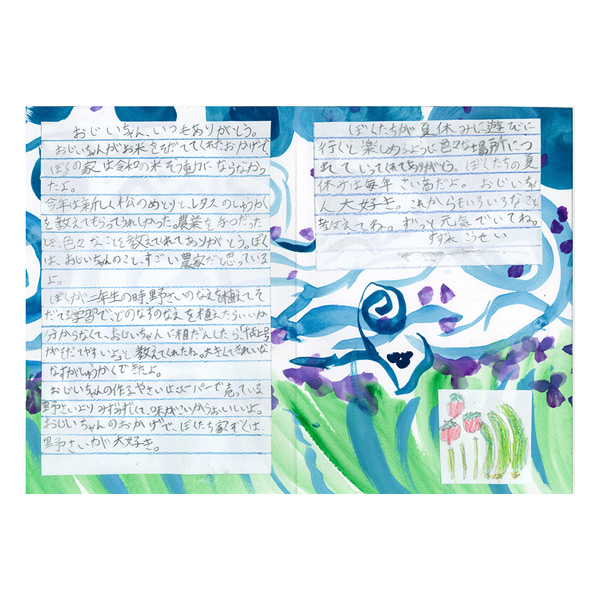 おじいちゃん、いつもありがとう。
おじいちゃんがお米をそだててくれたおかげで
ぼくの家は令和の米そう動にならなかっ
たよ。
今年は新しく松のめとりと、レタスのしゅうかく
を教えてもらってうれしかった。農業を手つだった
ら、色々なことを教えてくれてありがとう。ぼく
は、おじいちゃんのこと、すごい農家だと思っている
よ。
ぼくが二年生の時野さいのなえを植えてそ
だてる学習で、どのなすのなえを植えたらいいか
分からなくて、おじいちゃんに相だんしたら
がそだてやすいよ」と教えてくれたね。大きくてきれいな
なすがしゅうかくできたよ。
おじいちゃんの作るやさいはスーパーで売っている
野さいよりみずみずしくて、味がこいからおいしいよ。
おじいちゃんのおかげで、ぼくたち家ぞくは
野さいが大好き。
ぼくたちが夏休みに遊びに
行くと楽しめるように色々な場所につ
れていってくれてありがとう。ぼくたちの夏
休みは毎年さい高だよ。おじいちゃ
ん大好き。これからもいろいろなこと
教えてね。ずっと元気でいてね。
こうせい